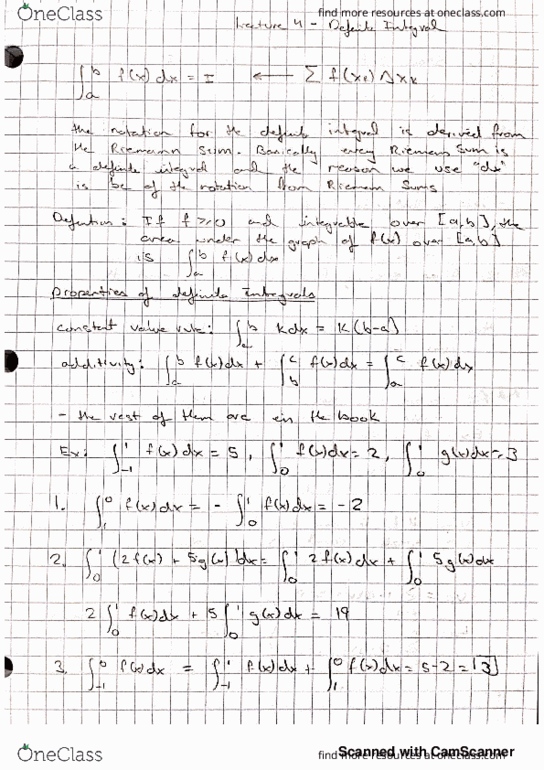 OneClass
find more resources at oneclass.com
Lecture 4 - Definite Integral
∫_a^b f(x) dx = I ← Σ f(x_k) Δx_k
the notation for the definite integral is derived from
the Riemann Sum. Basically every Riemann Sum is
a definite integral and the reason we use "dx"
is bc of the notation from Riemann Sums
Definition: If f ≥ 0 and integrable over [a,b], the
area under the graph of f(x) over [a,b]
is ∫_a^b f(x) dx
Properties of definite Integrals
constant value rule: ∫_a^b k dx = k(b-a)
additivity: ∫_a^b f(x)dx + ∫_b^c f(x)dx = ∫_a^c f(x)dx
- the rest of them are in the book
Ex: ∫_-1^1 f(x)dx = 5, ∫_0^1 f(x)dx = 2, ∫_0^1 g(x)dx = 3
1. ∫_1^0 f(x)dx = - ∫_0^1 f(x)dx = -2
2. ∫_0^1 (2f(x) + 5g(x))dx = ∫_0^1 2f(x)dx + ∫_0^1 5g(x)dx
2 ∫_0^1 f(x)dx + 5 ∫_0^1 g(x)dx = 19
3. ∫_-1^0 f(x)dx = ∫_-1^1 f(x)dx + ∫_1^0 f(x)dx = 5-2 = 3
OneClass
find more resources at oneclass.com
Scanned with CamScanner